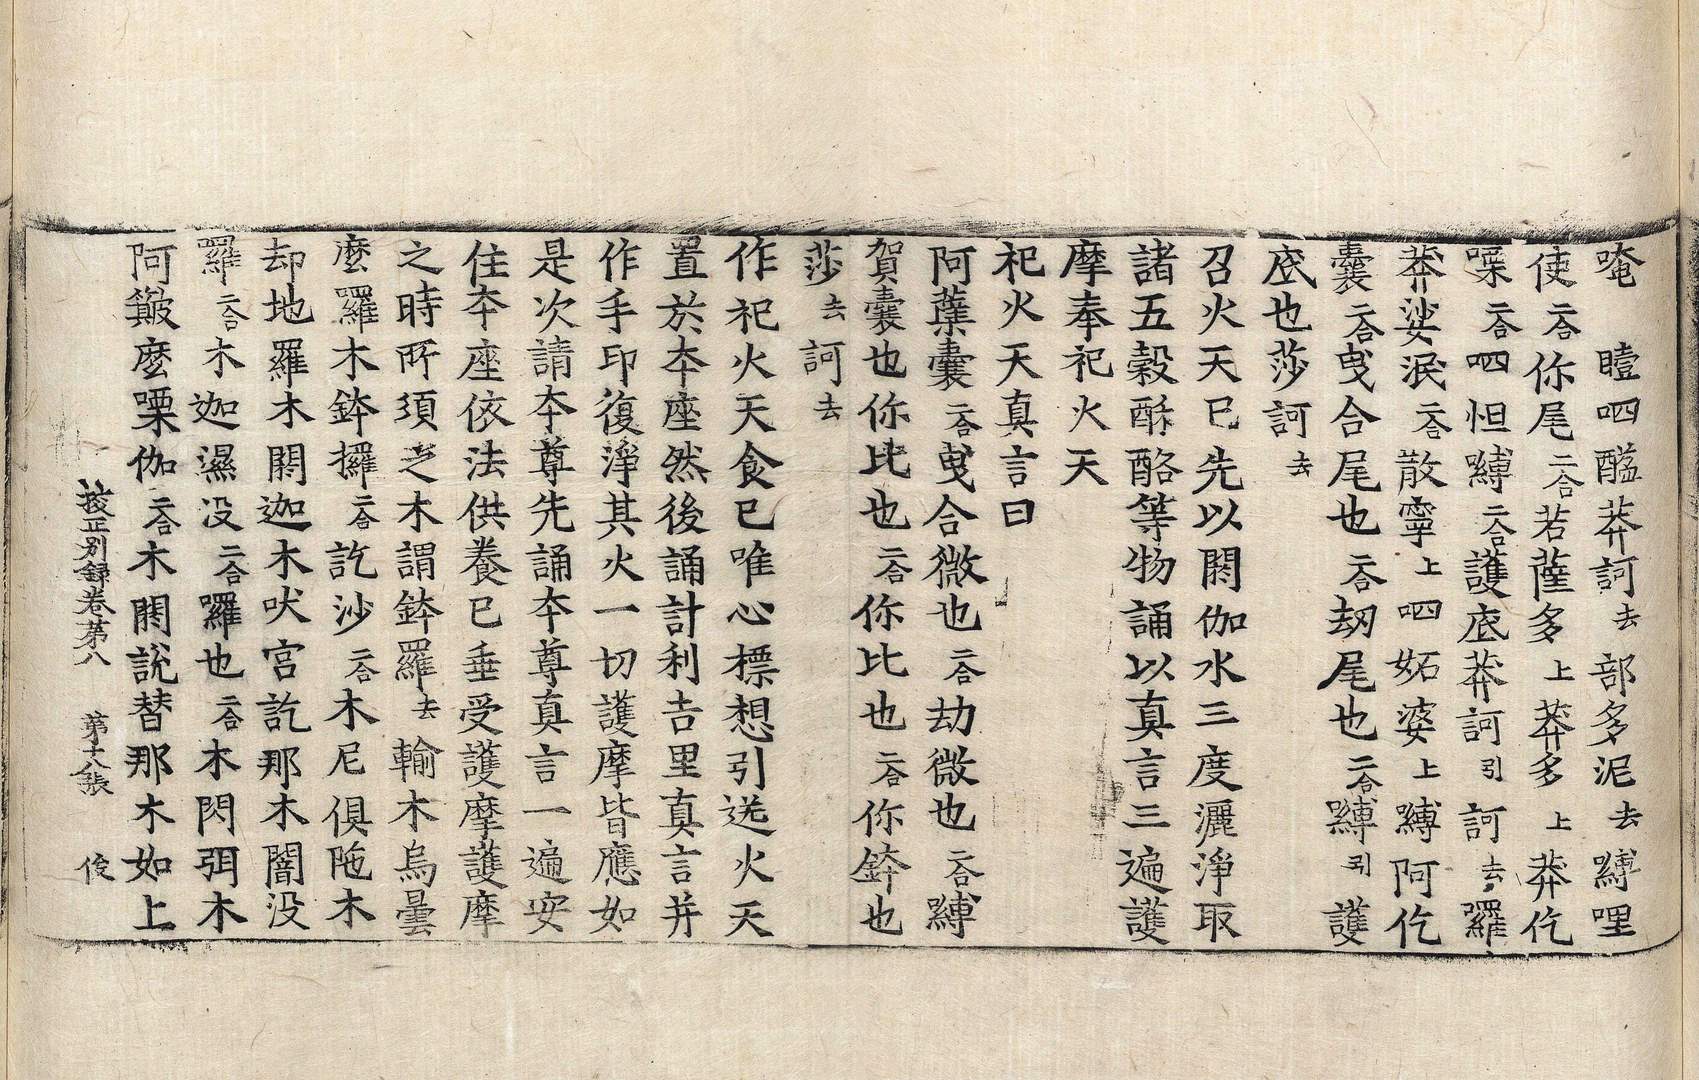 唵 曀呬醯莽訶去部多泥去嚩哩
使二合你尾二合若薩多上莽多上莽仡
㗚二合呬怛嚩二合護底莽訶引訶去囉
莽娑泯二合散寧上呬妬婆上嚩阿仡
曩二合曳合尾也二合劫尾也二合嚩引護
底也莎訶去
召火天已先以閼伽水三度灑淨取
諸五穀酥酪等物誦以真言三遍護
摩奉祀火天
祀火天真言曰
阿蘖曩二合曵合微也二合劫微也二合嚩
賀曩也你比也二合你比也二合你鉡也
莎去訶去
作祀火天食已唯心標想引送火天
置於夲座然後誦計利吉里真言并
作手印復淨其火一切護摩皆應如
是次請夲尊先誦夲尊真言一遍安
住夲座依法供養已垂受護摩護摩
之時所須之木謂鉢羅去輸木烏曇
麼囉木鉢攞二合訖沙二合木尼俱陁木
却地羅木閼迦木吠宫訖那木闇没
羅二合木迦濕没二合囉也二合木閃弭木
阿簸麼㗚伽二合木閼說替那木如上
挍正別録卷第八 第十八張 俊